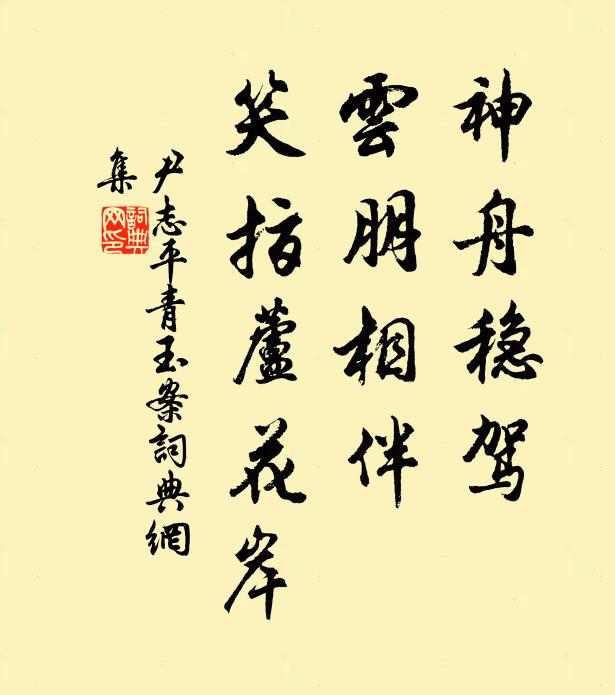 神舟稳驾
雲朋相伴
笑指蘆花岸
尹志平青玉案詞典網
集
詞典网印